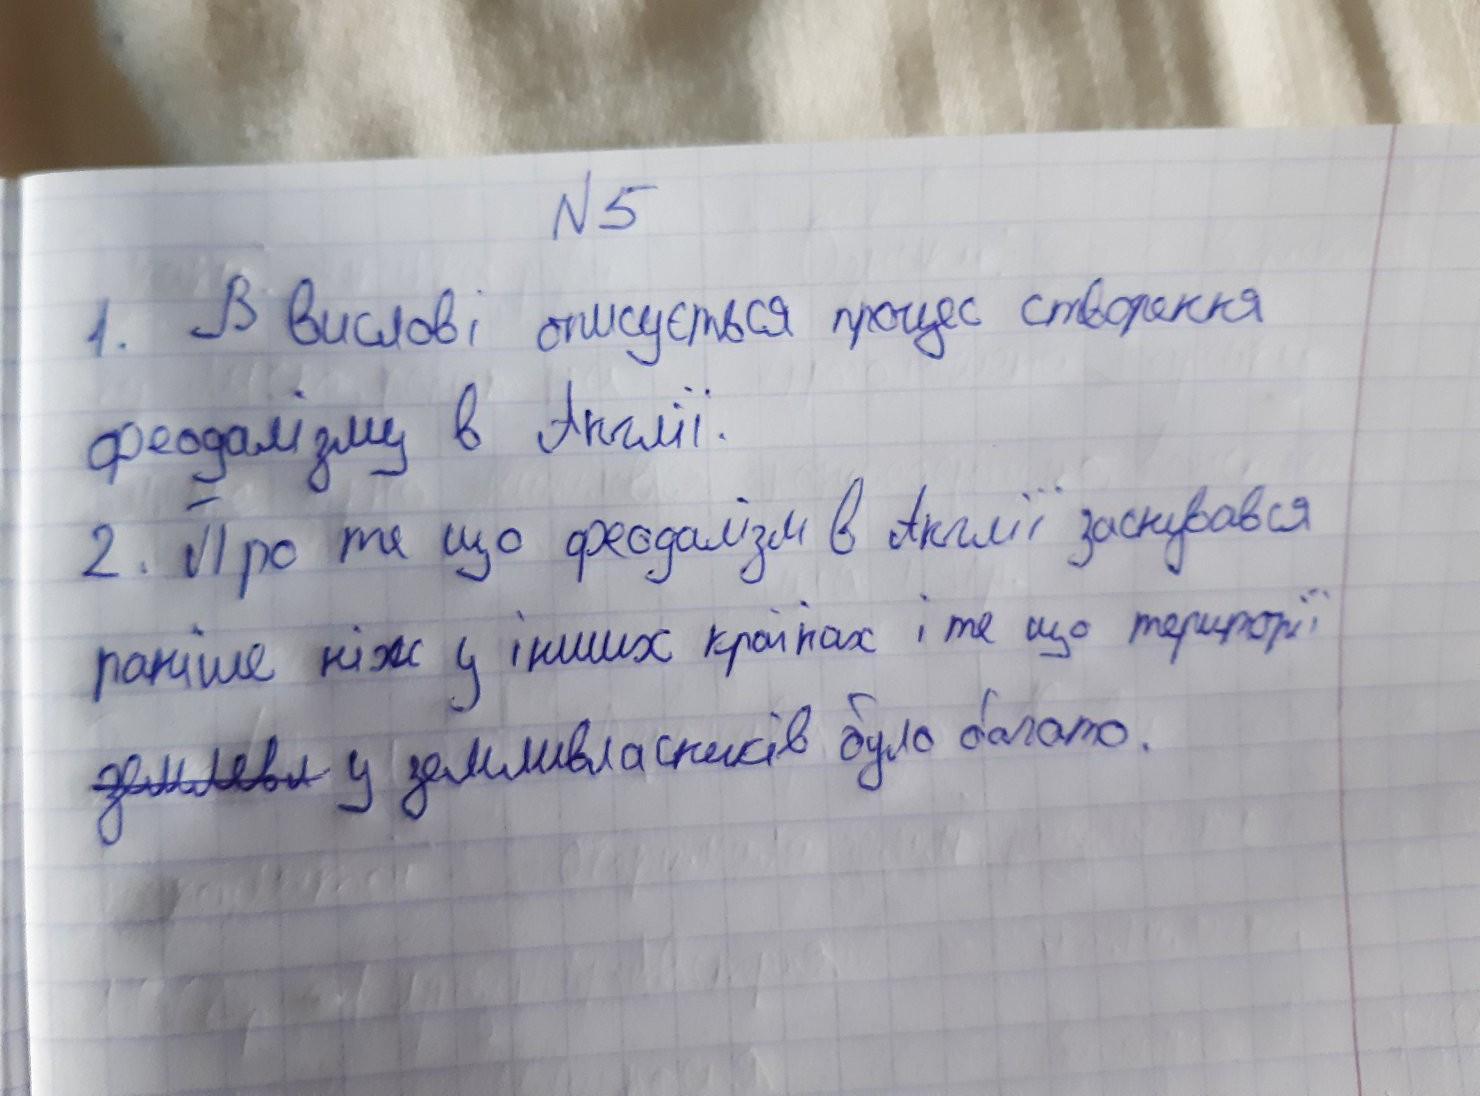 N5
1. В вислові описується процес створення
феодалізму в Англії.
2. Про те що феодалізм в Англії заснувався
раніше ніж у інших країнах і те що території
землевл у земливласників було багато.